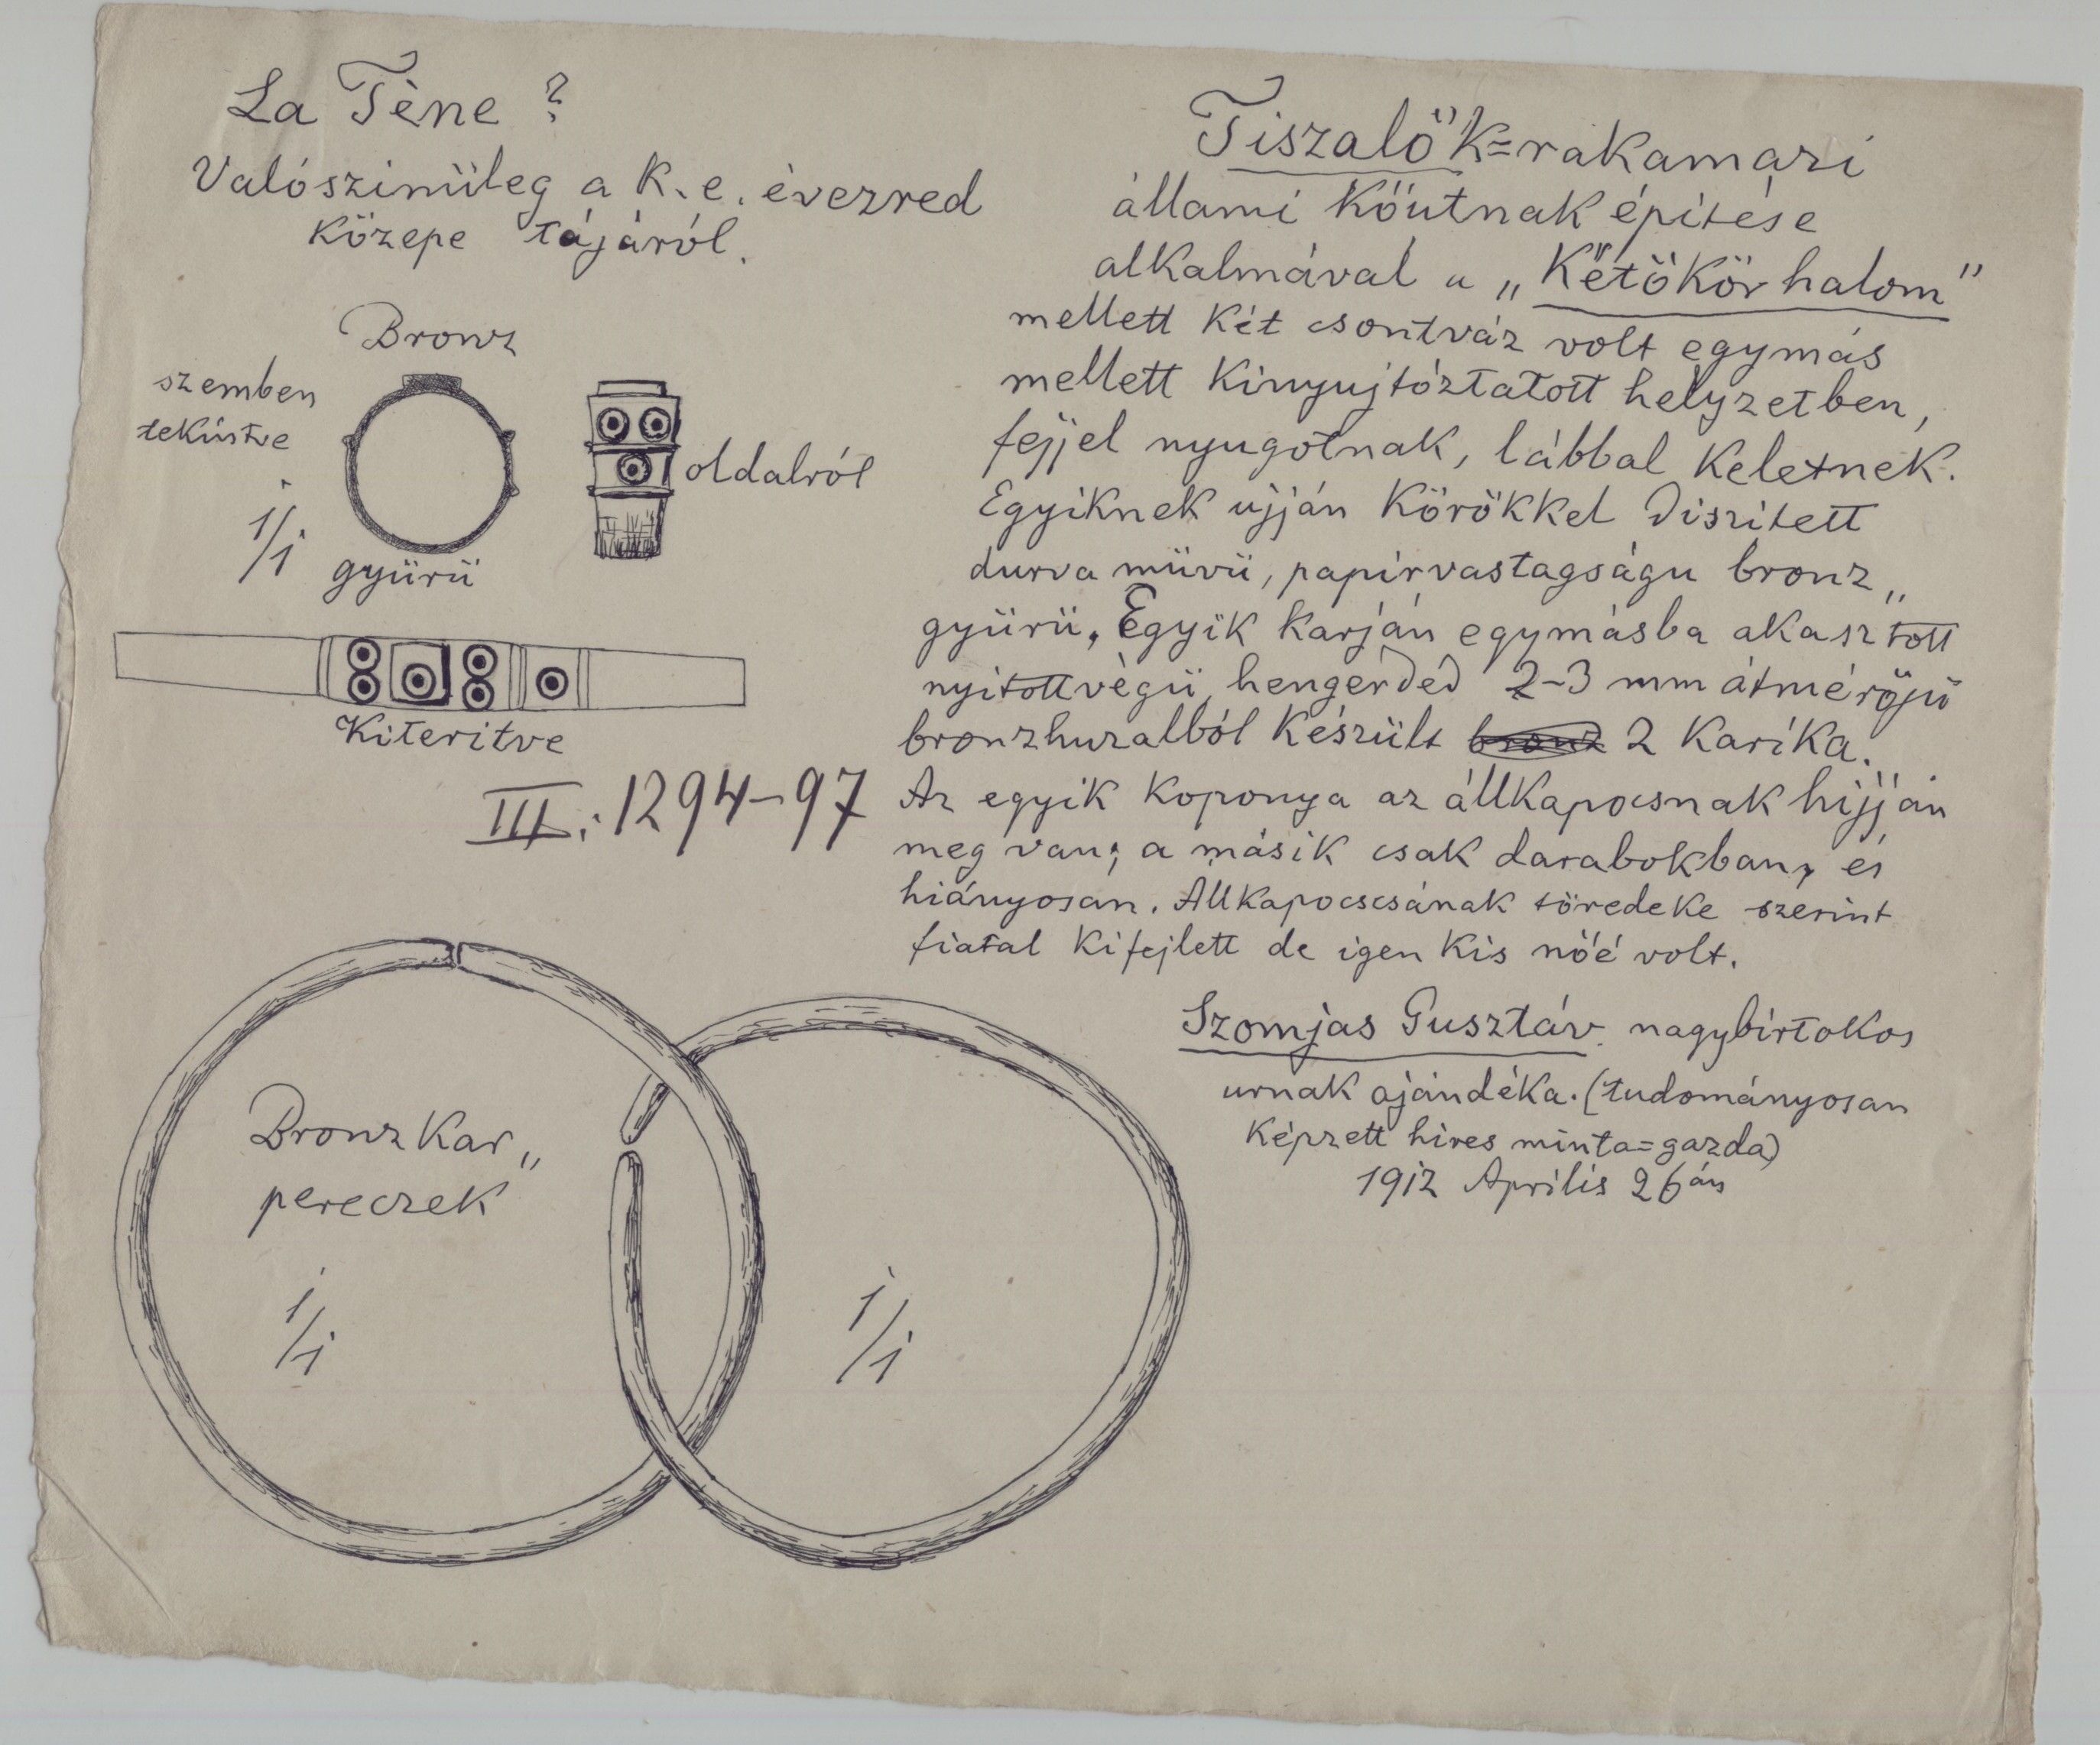 La Tène ?
Valószinüleg a K. e. évezred
közepe tájáról.
Bronz
szemben
tekintve
1/1
gyürü
oldalról
Kiteritve
III. 1294-97
Bronz Kar„
pereczek
1/1
1/1
Tiszalök=rakamazi
állami Kőútnak épitése
alkalmával a „Kétökörhalom"
mellett Két csontváz volt egymás
mellett Kinyujtóztatott helyzetben,
fejjel nyugotnak, lábbal Keletnek.
Egyiknek ujján Körökkel diszitett
durva müvü, papirvastagságu bronz„
gyürü. Egyik karján egymásba akasztott
nyitottvégü, hengerded 2-3 mm átmérőjü
bronzhuzalból Készült bronz 2 Karika.
Az egyik Koponya az állkapocsnak hijján
meg van; a másik csak darabokban, és
hiányosan. Allkapocscsának töredeke szerint
fiatal kifejlett de igen Kis nőé volt.
Szomjas Gusztáv nagybirtokos
urnak ajándéka. (tudományosan
Képzett hires minta=gazda)
1912 Április 26án